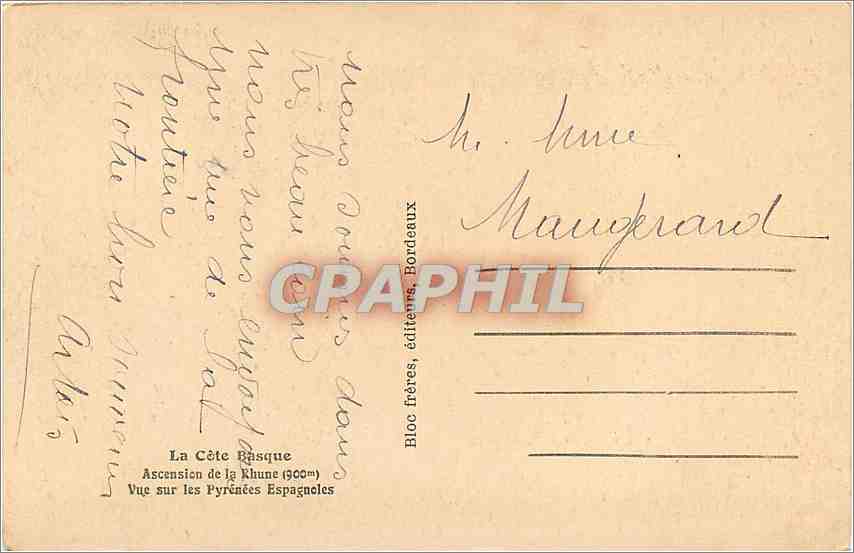 nous sommes dans
très beau coin
nous vous envoyons
que vue de la
frontière
Notre bon souvenir
Artois
M. Mme
Maugerard
CPAPHIL
Bloc frères, éditeurs, Bordeaux
La Côte Basque
Ascension de la Rhune (900m)
Vue sur les Pyrénées Espagnoles